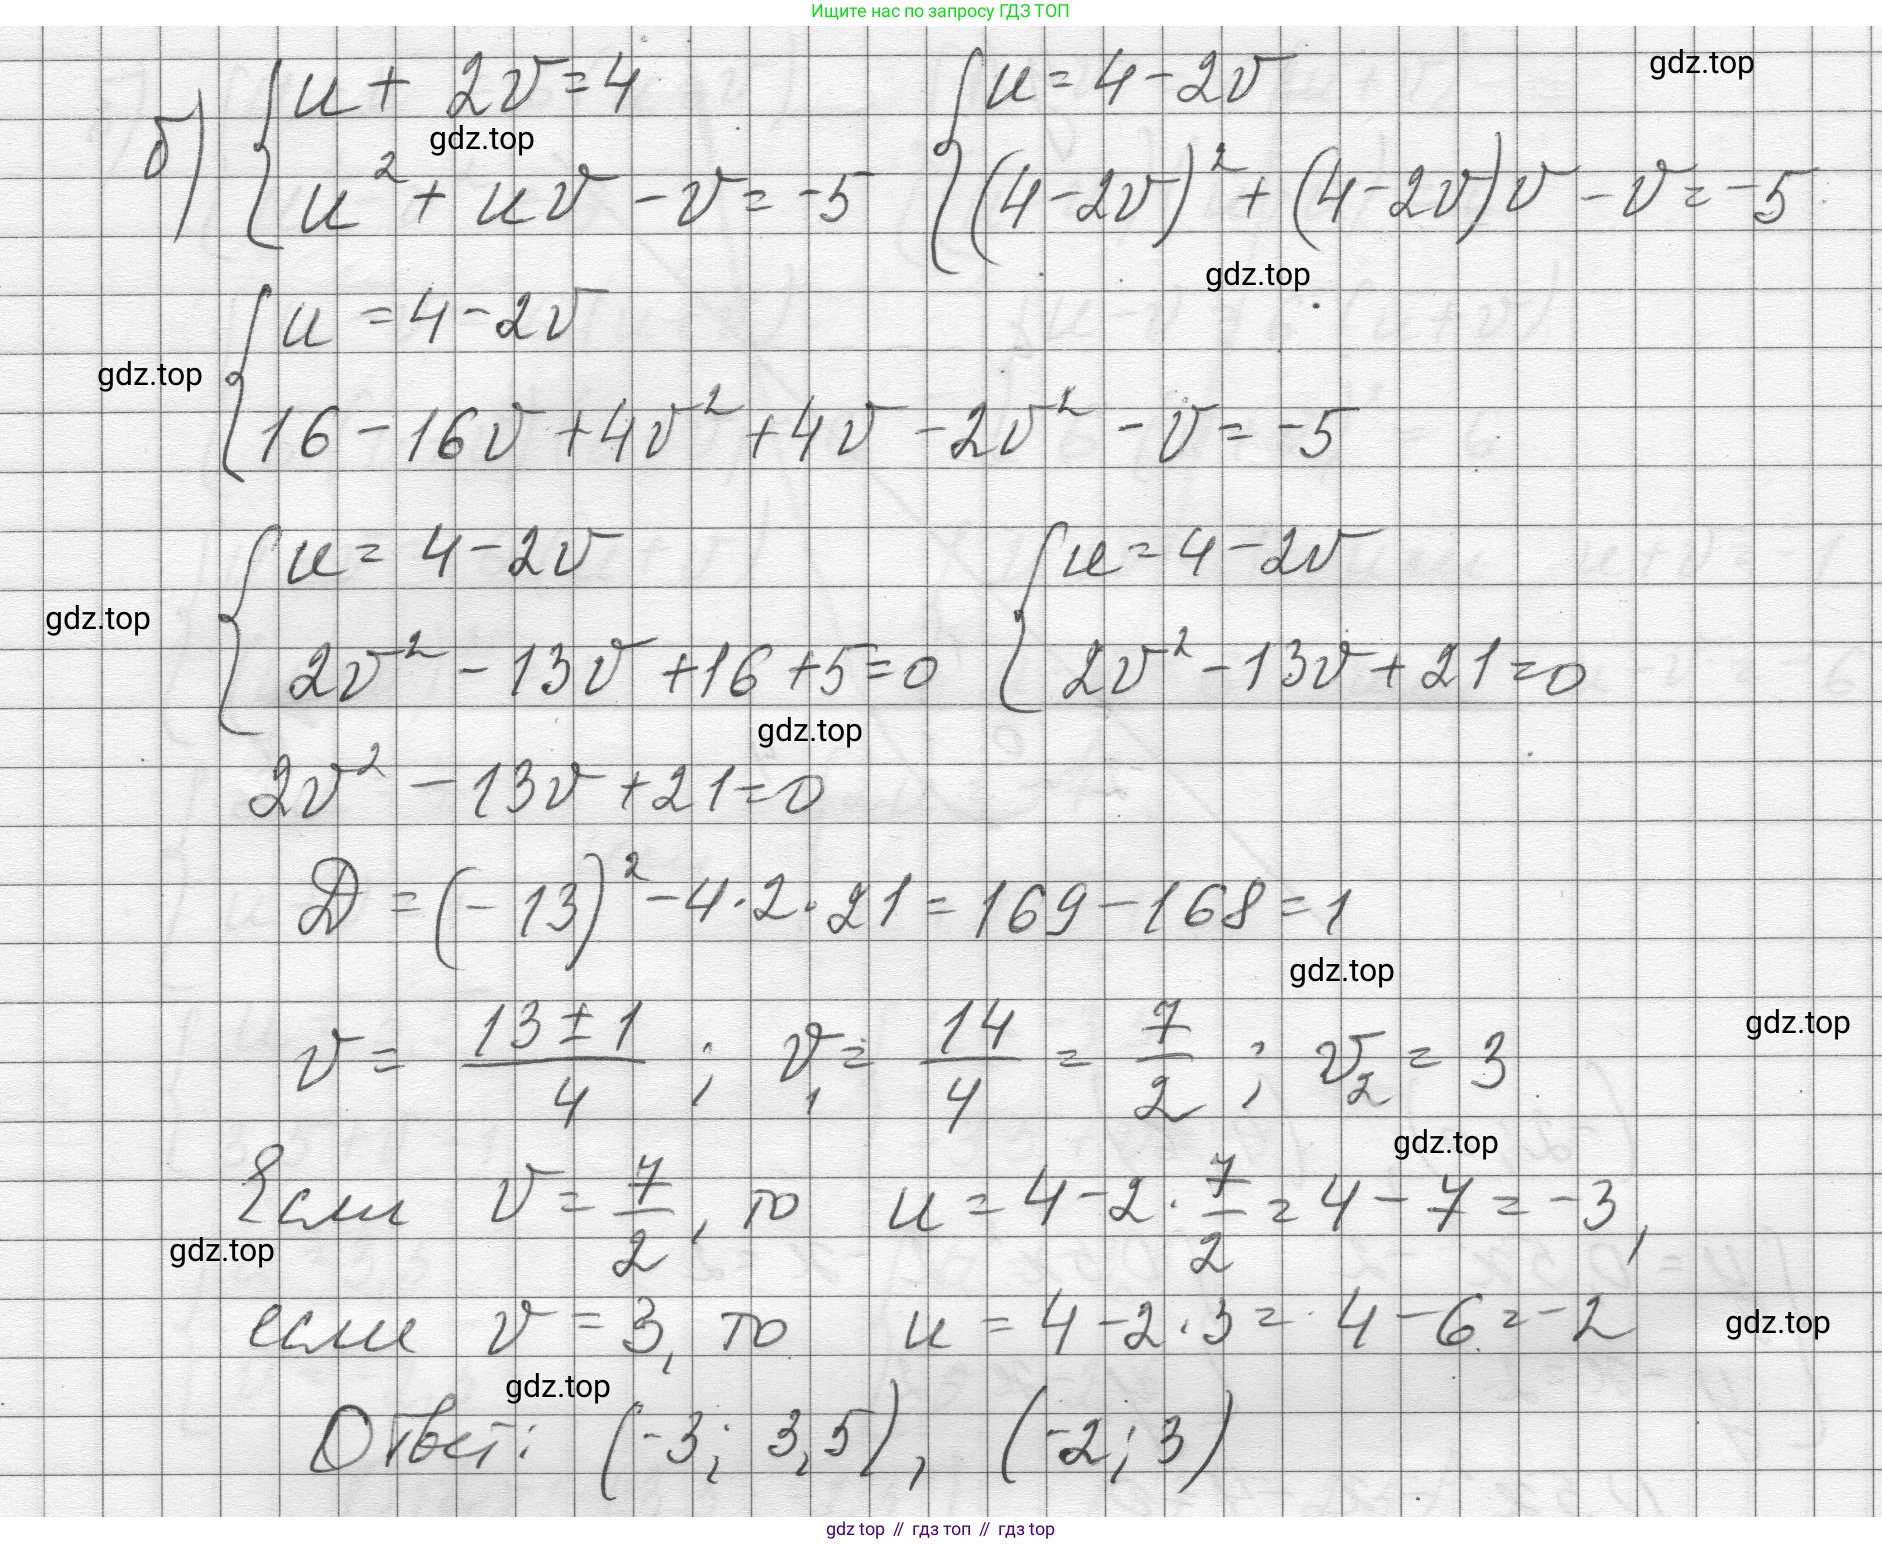 Ищите нас по запросу ГДЗ ТОП
б) { u + 2v = 4 { u = 4 - 2v
gdz.top
gdz.top
u² + uv - v = -5 (4 - 2v)² + (4 - 2v)v - v = -5
gdz.top
{ u = 4 - 2v
gdz.top
16 - 16v + 4v² + 4v - 2v² - v = -5
{ u = 4 - 2v { u = 4 - 2v
gdz.top
2v² - 13v + 16 + 5 = 0 2v² - 13v + 21 = 0
gdz.top
2v² - 13v + 21 = 0
D = (-13)² - 4 · 2 · 21 = 169 - 168 = 1
gdz.top
gdz.top
v = (13 ± 1)/4 ; v₁ = 14/4 = 7/2 ; v₂ = 3
gdz.top
Если v = 7/2, то u = 4 - 2 · 7/2 = 4 - 7 = -3,
gdz.top
если v = 3, то u = 4 - 2 · 3 = 4 - 6 = -2
gdz.top
gdz.top
Ответ: (-3; 3,5), (-2; 3)
gdz top // гдз топ // gdz top